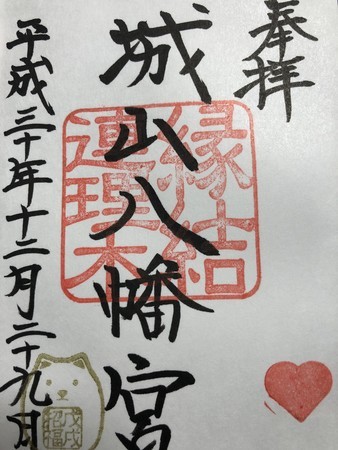 奉拝
縁結
連理木
城山八幡宮
平成三十年十二月二十九日
戊戌
招福